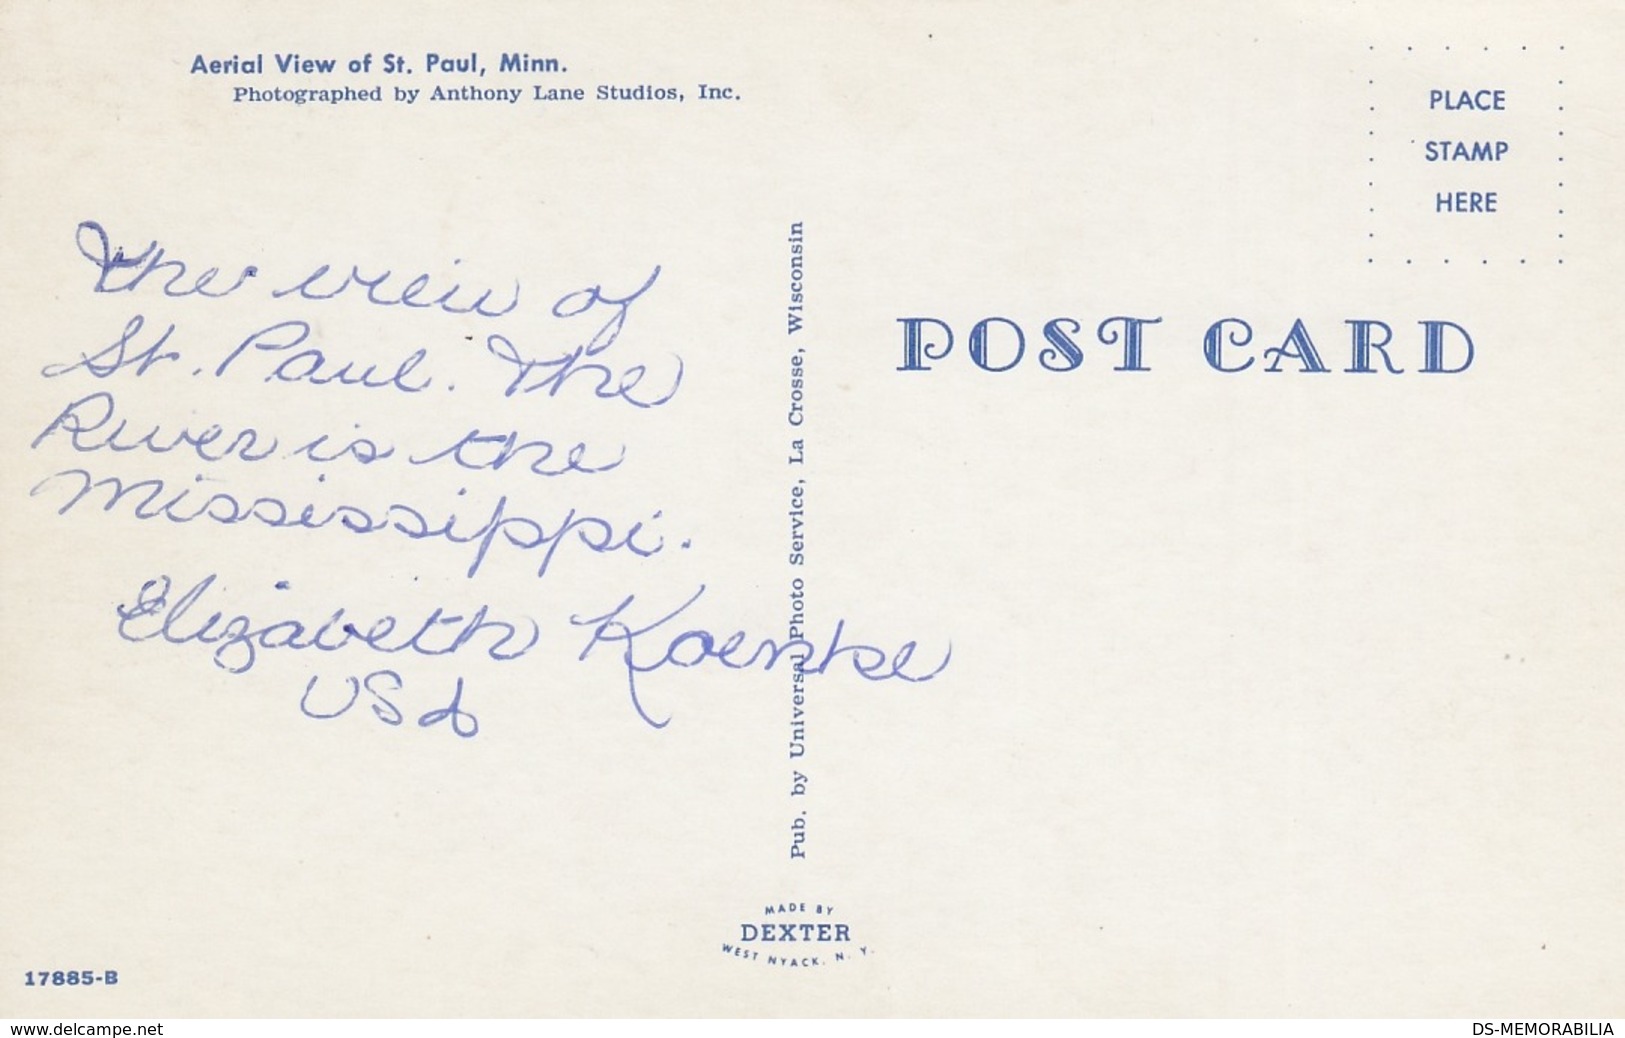 Aerial View of St. Paul, Minn.
Photographed by Anthony Lane Studios, Inc.
The view of
St. Paul. The
River is the
Mississippi.
Elizabeth Koenke
USA
17885-B
Pub. by Universal Photo Service, La Crosse, Wisconsin
MADE BY
DEXTER
WEST NYACK, N. Y.
PLACE
STAMP
HERE
POST CARD
www.delcampe.net
DS-MEMORABILIA